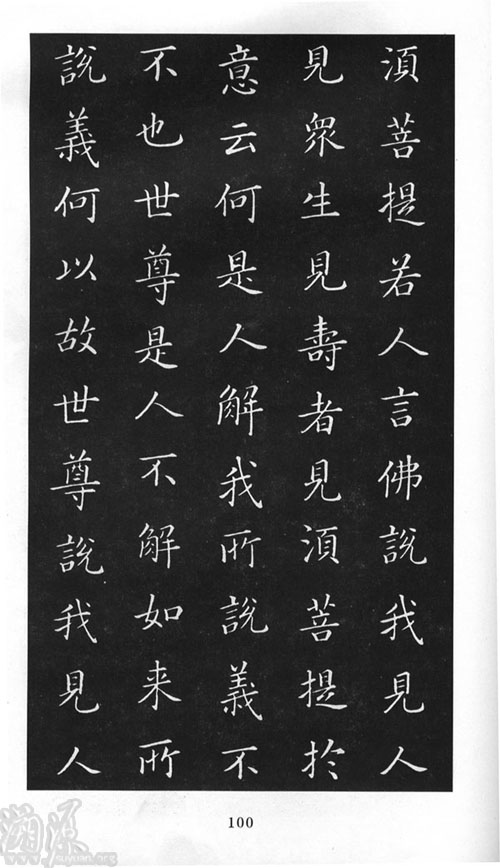 湏菩提若人言佛說我見人
見衆生見壽者見湏菩提於
意云何是人解我所說義不
不也世尊是人不解如来所
說義何以故世尊說我見人
100
溯源
suyuan.org